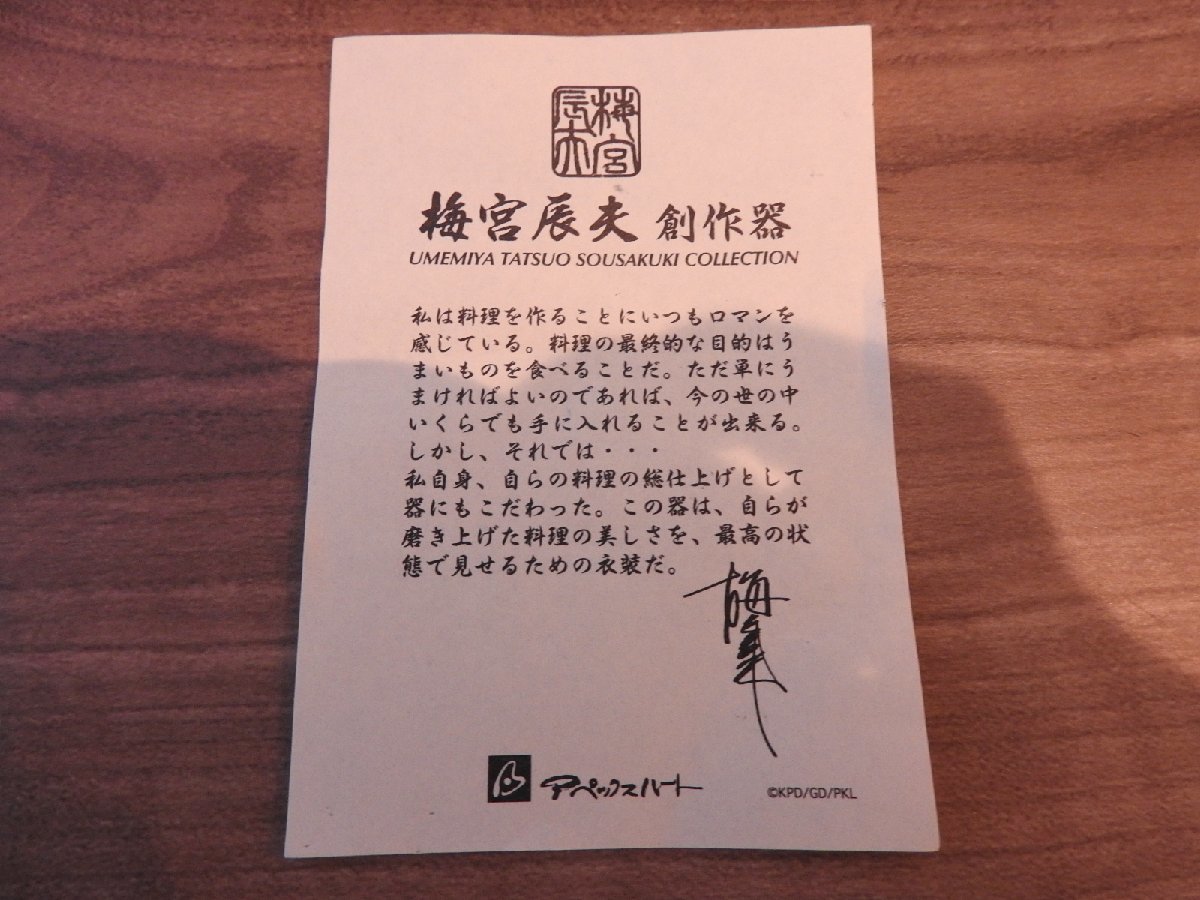 梅宮
辰夫
梅宮辰夫 創作器
UMEMIYA TATSUO SOUSAKUKI COLLECTION
私は料理を作ることにいつもロマンを
感じている。料理の最終的な目的はう
まいものを食べることだ。ただ単にう
まければよいのであれば、今の世の中
いくらでも手に入れることが出来る。
しかし、それでは・・・
私自身、自らの料理の総仕上げとして
器にもこだわった。この器は、自らが
磨き上げた料理の美しさを、最高の状
態で見せるための衣装だ。
アペックスハート
©KPD/GD/PKL